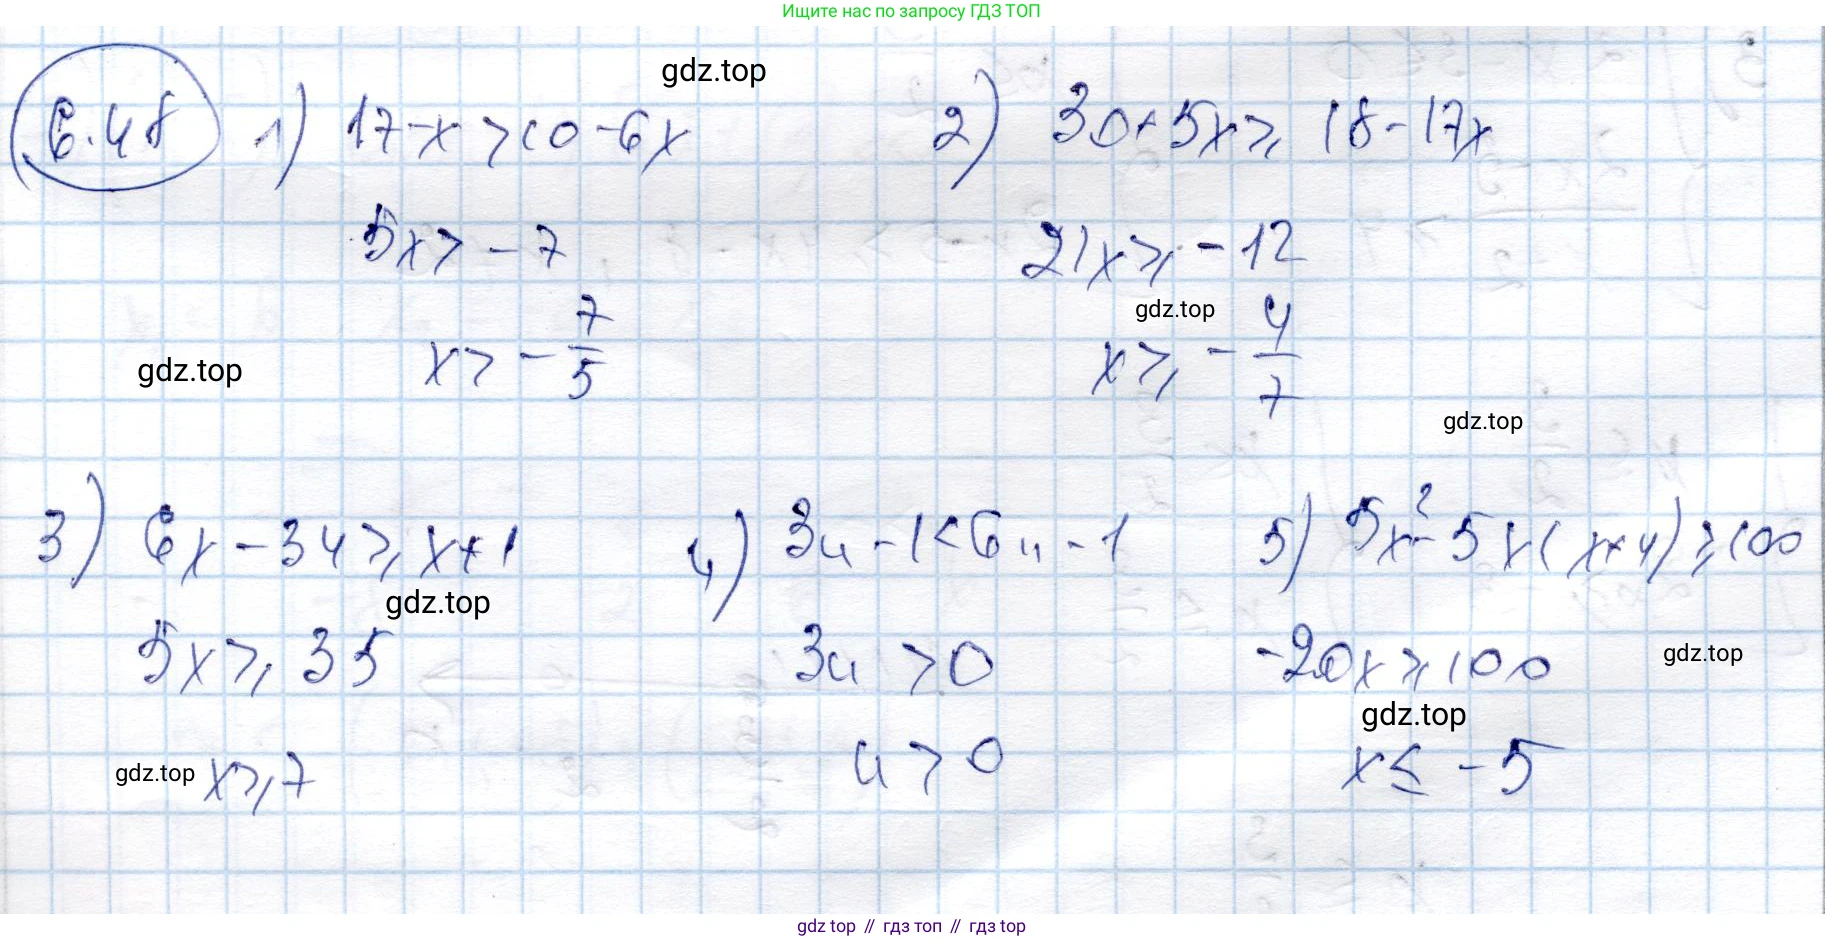 Ищите нас по запросу ГДЗ ТОП
gdz.top
6.48 1) 17-x>10-6x 2) 30+5x⩾18-17x
5x>-7 21x⩾-12
gdz.top
x>-7/5 x⩾-4/7
gdz.top
gdz.top
3) 6x-34⩾x+1 4) 3u-1<6u-1 5) 5x²-5x(x+4)⩾100
gdz.top
5x⩾35 3u>0 -20x⩾100
gdz.top
gdz.top
gdz.top x⩾7 u>0 x≤-5
gdz.top // гдз топ // gdz.top